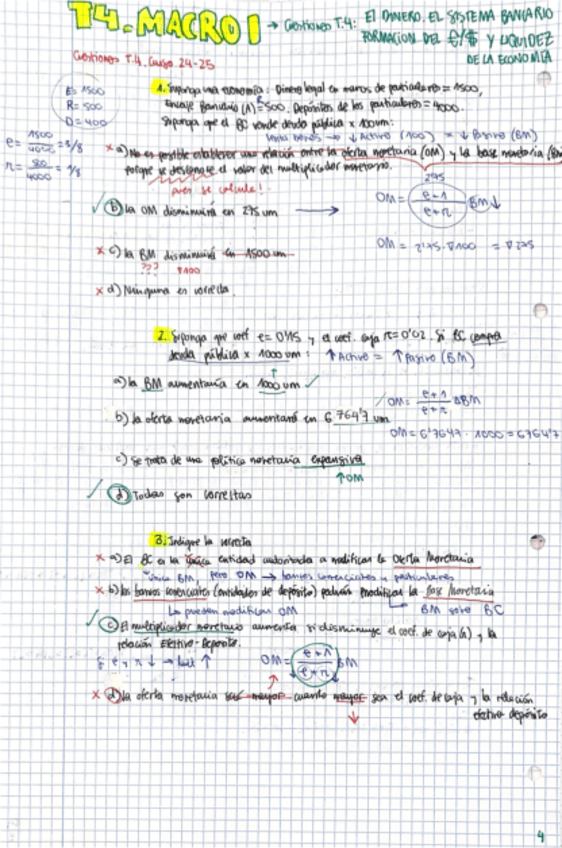 T4. MACRO I → Cuestiones T.4: El DINERO. EL SISTEMA BANCARIO
FORMACIÓN DEL €/$ Y LIQUIDEZ
DE LA ECONOMÍA
Cuestiones T.4. Curso 24-25
E= 1500
R= 500
D= 400
1. Suponga una economía: Dinero legal en manos de particulares = 1500,
Encaje Bancario (R) = 500. Depósitos de los particulares = 4000.
Suponga que el BC vende deuda pública x 100um:
venta bonos → ↓ Activo (100) = ↓ Pasivo (BM)
e = 1500/4000 = 3/8
x a) No es posible establecer una relación entre la oferta monetaria (OM) y la base monetaria (BM)
porque se desconoce el valor del multiplicador monetario.
pero se calcula!
2'75
OM = (e+1)/(e+r) BM↓
✓ b) la OM disminuirá en 275 um →
OM = 2'75 · ∇100 = ∇275
x c) la BM disminuirá en 1500 um
??? ∇100
x d) Ninguna es correcta.
2. Suponga que coef e= 0'15 y el coef. caja r= 0'02. Si BC compra
deuda pública x 1000 um: ↑ Activo = ↑ Pasivo (BM)
a) la BM aumentaría en 1000 um ✓
OM = (e+1)/(e+r) ΔBM
b) la oferta monetaria aumentará en 6.764'7 um
OM = 6'7647 · 1000 = 6764'7
c) Se trata de una política monetaria expansiva
↑OM
✓ d) Todas son correctas
3. Indique la correcta
x a) El BC es la única entidad autorizada a modificar la Oferta Monetaria
única BM, pero OM → bancos comerciales y particulares
x b) los bancos comerciales (entidades de depósito) podrán modificar la Base Monetaria
↳ pueden modificar OM
BM solo BC
✓ c) El multiplicador monetario aumenta si disminuye el coef. de caja (r) y la
relación Efectivo-Depósito.
Si e y r ↓ → mult ↑
OM = (e+1)/(e+r) BM
x d) la oferta monetaria será mayor cuando mayor sea el coef. de caja y la relación
efectivo depósito
4